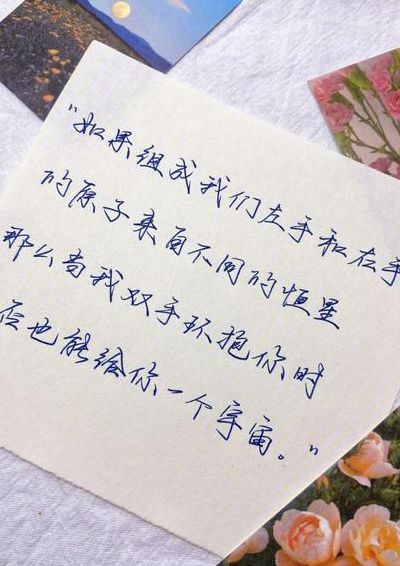 "如果组成我们左手和右手
的原子来自不同的恒星
那么当我双手环抱你时
否也能给你一个宇宙。"